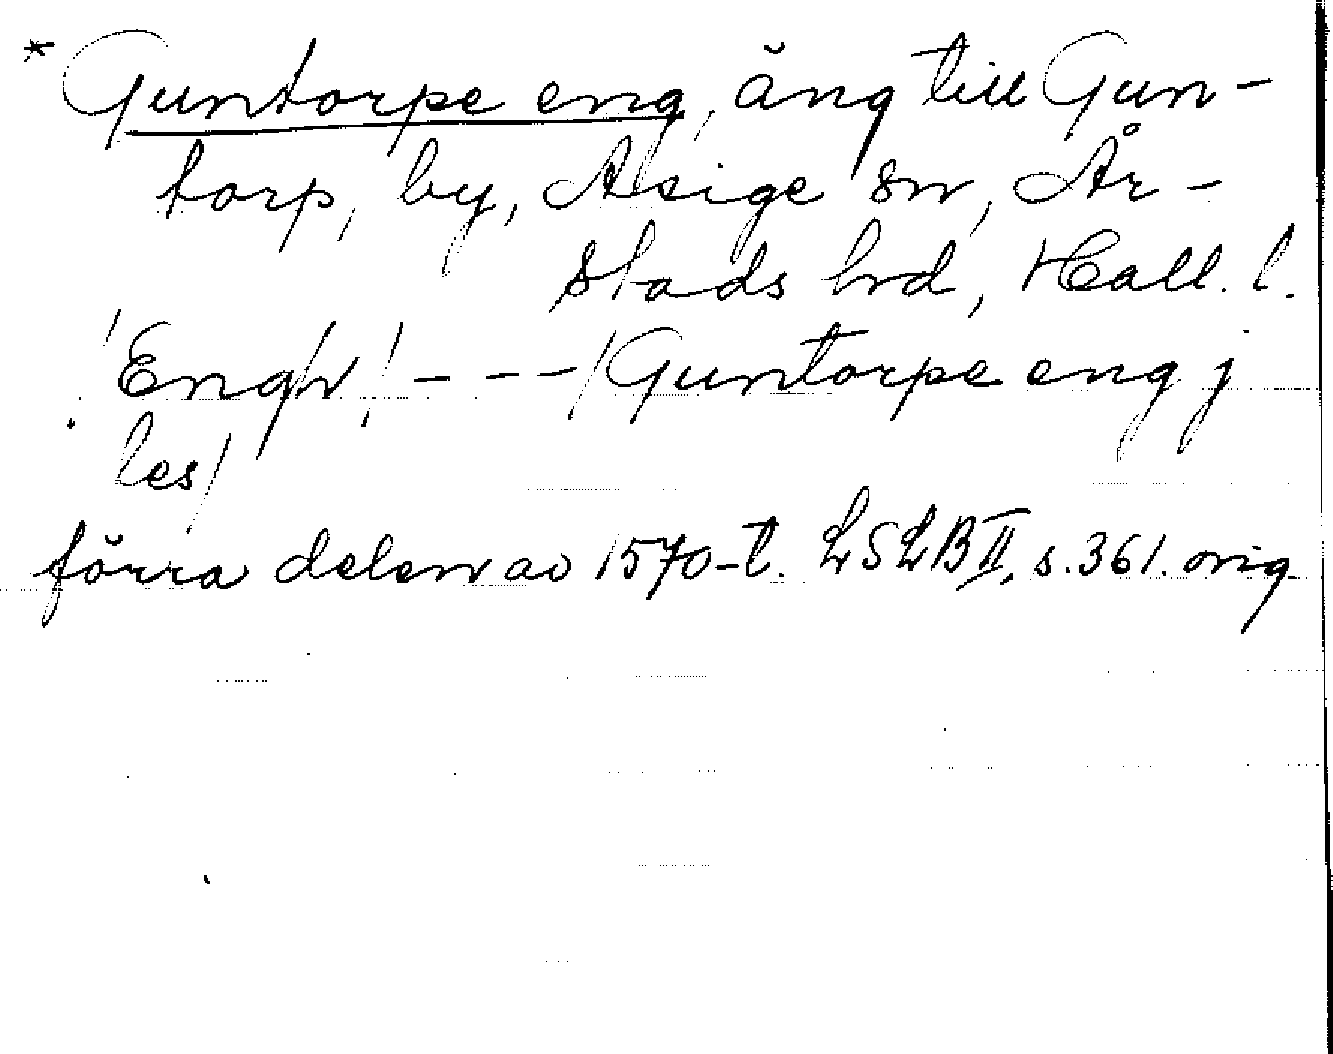 * Guntorpe eng, äng till Gun-
torp, by, Asige sn, År-
stads hrd, Hall. l.
/: Engh / - - - / Guntorpe eng j
les /
förra delen av 1570-t. LSLB II, s. 361. orig